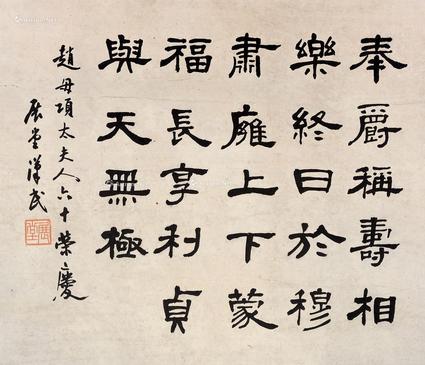 奉爵稱壽相
樂終日於穆
肅雍上下蒙
福長享利貞
與天無極
趙母項太夫人六十榮慶
展堂漢民
展堂